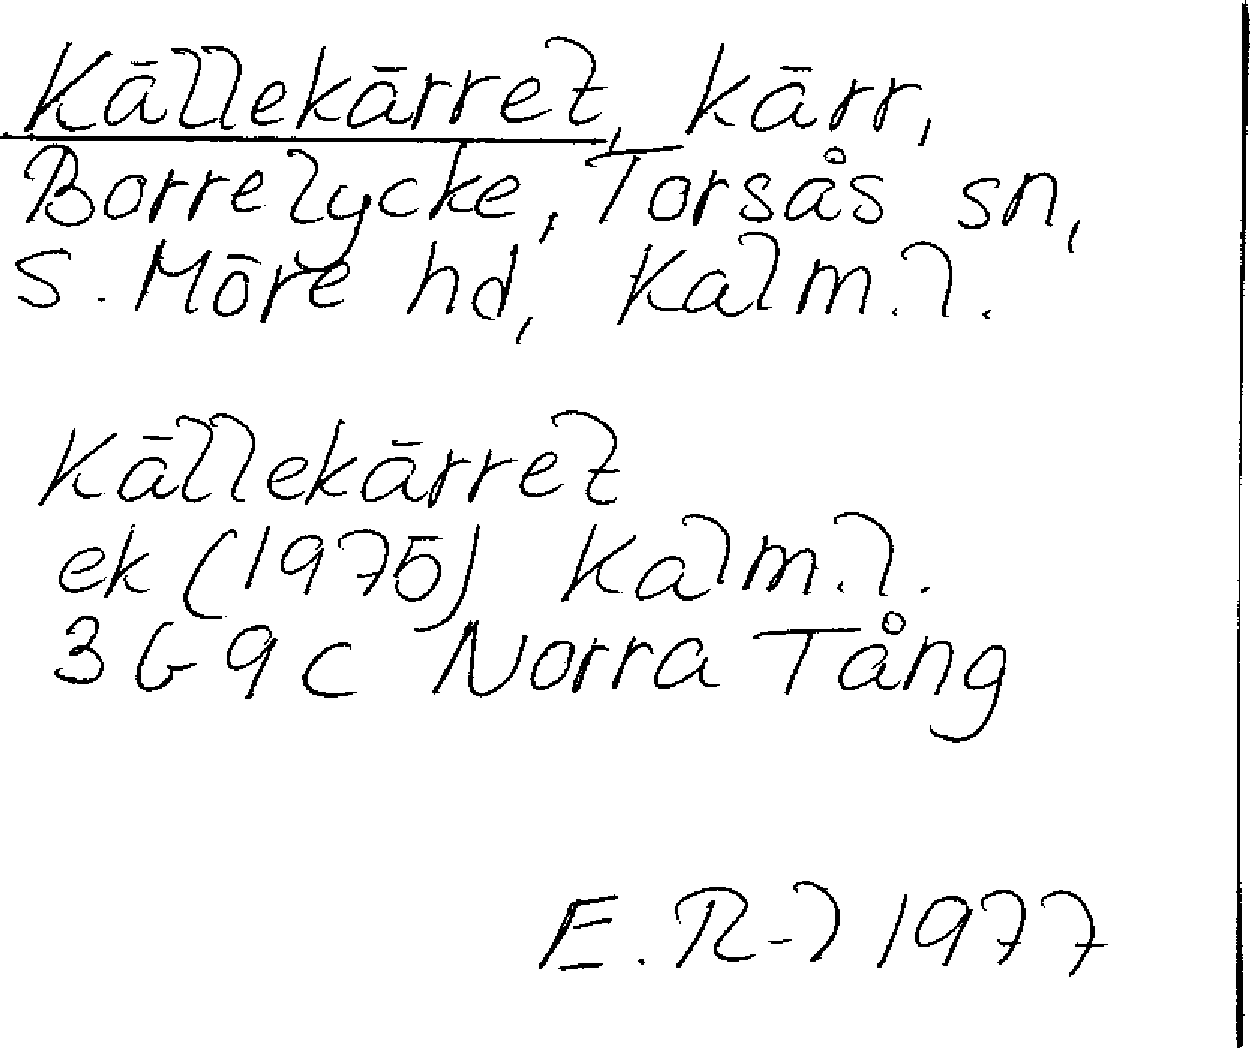 Källekärret, kärr,
Borrelycke, Torsås sn,
S. Möre hd, Kalm. l.
Källekärret
ek (1975) Kalm. l.
3 G 9 c Norra Tång
E. R-l 1977